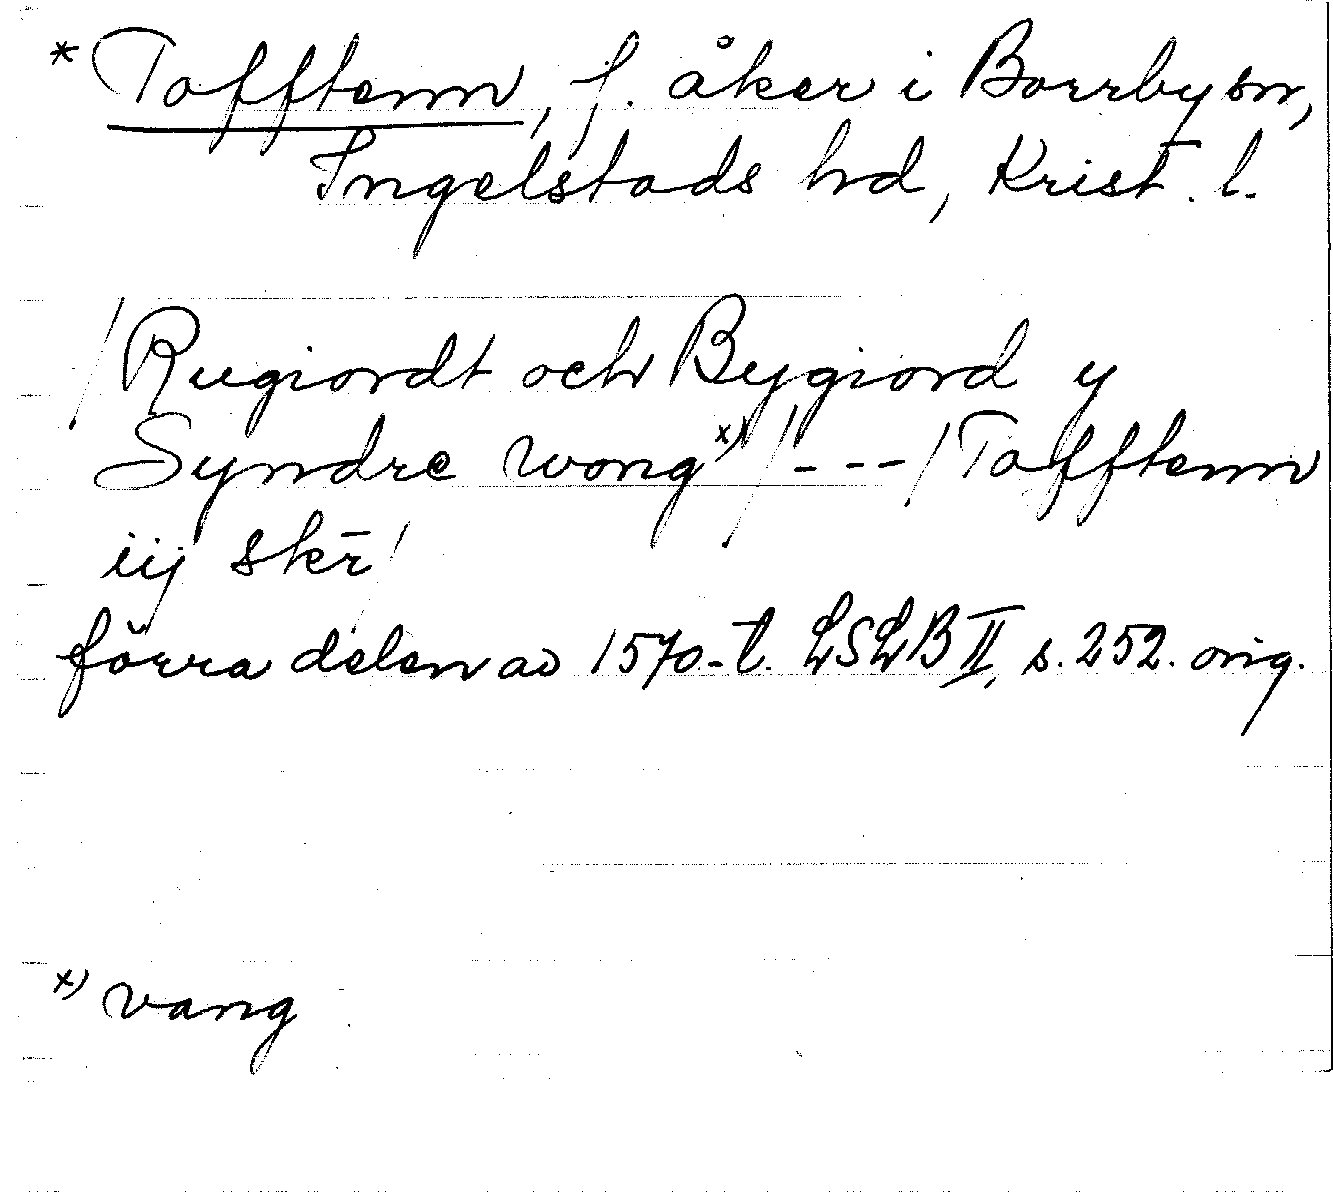 * Tofftenn, f. åker i Borrby sn,
Ingelstads hd, Krist. l.
/Rugiordt och Bygiord y
Syndre wong x)/ - - - /Tofftenn
iij skr̄/
förra delen av 1570-t. LSLB II, s. 252. orig.
x) vang